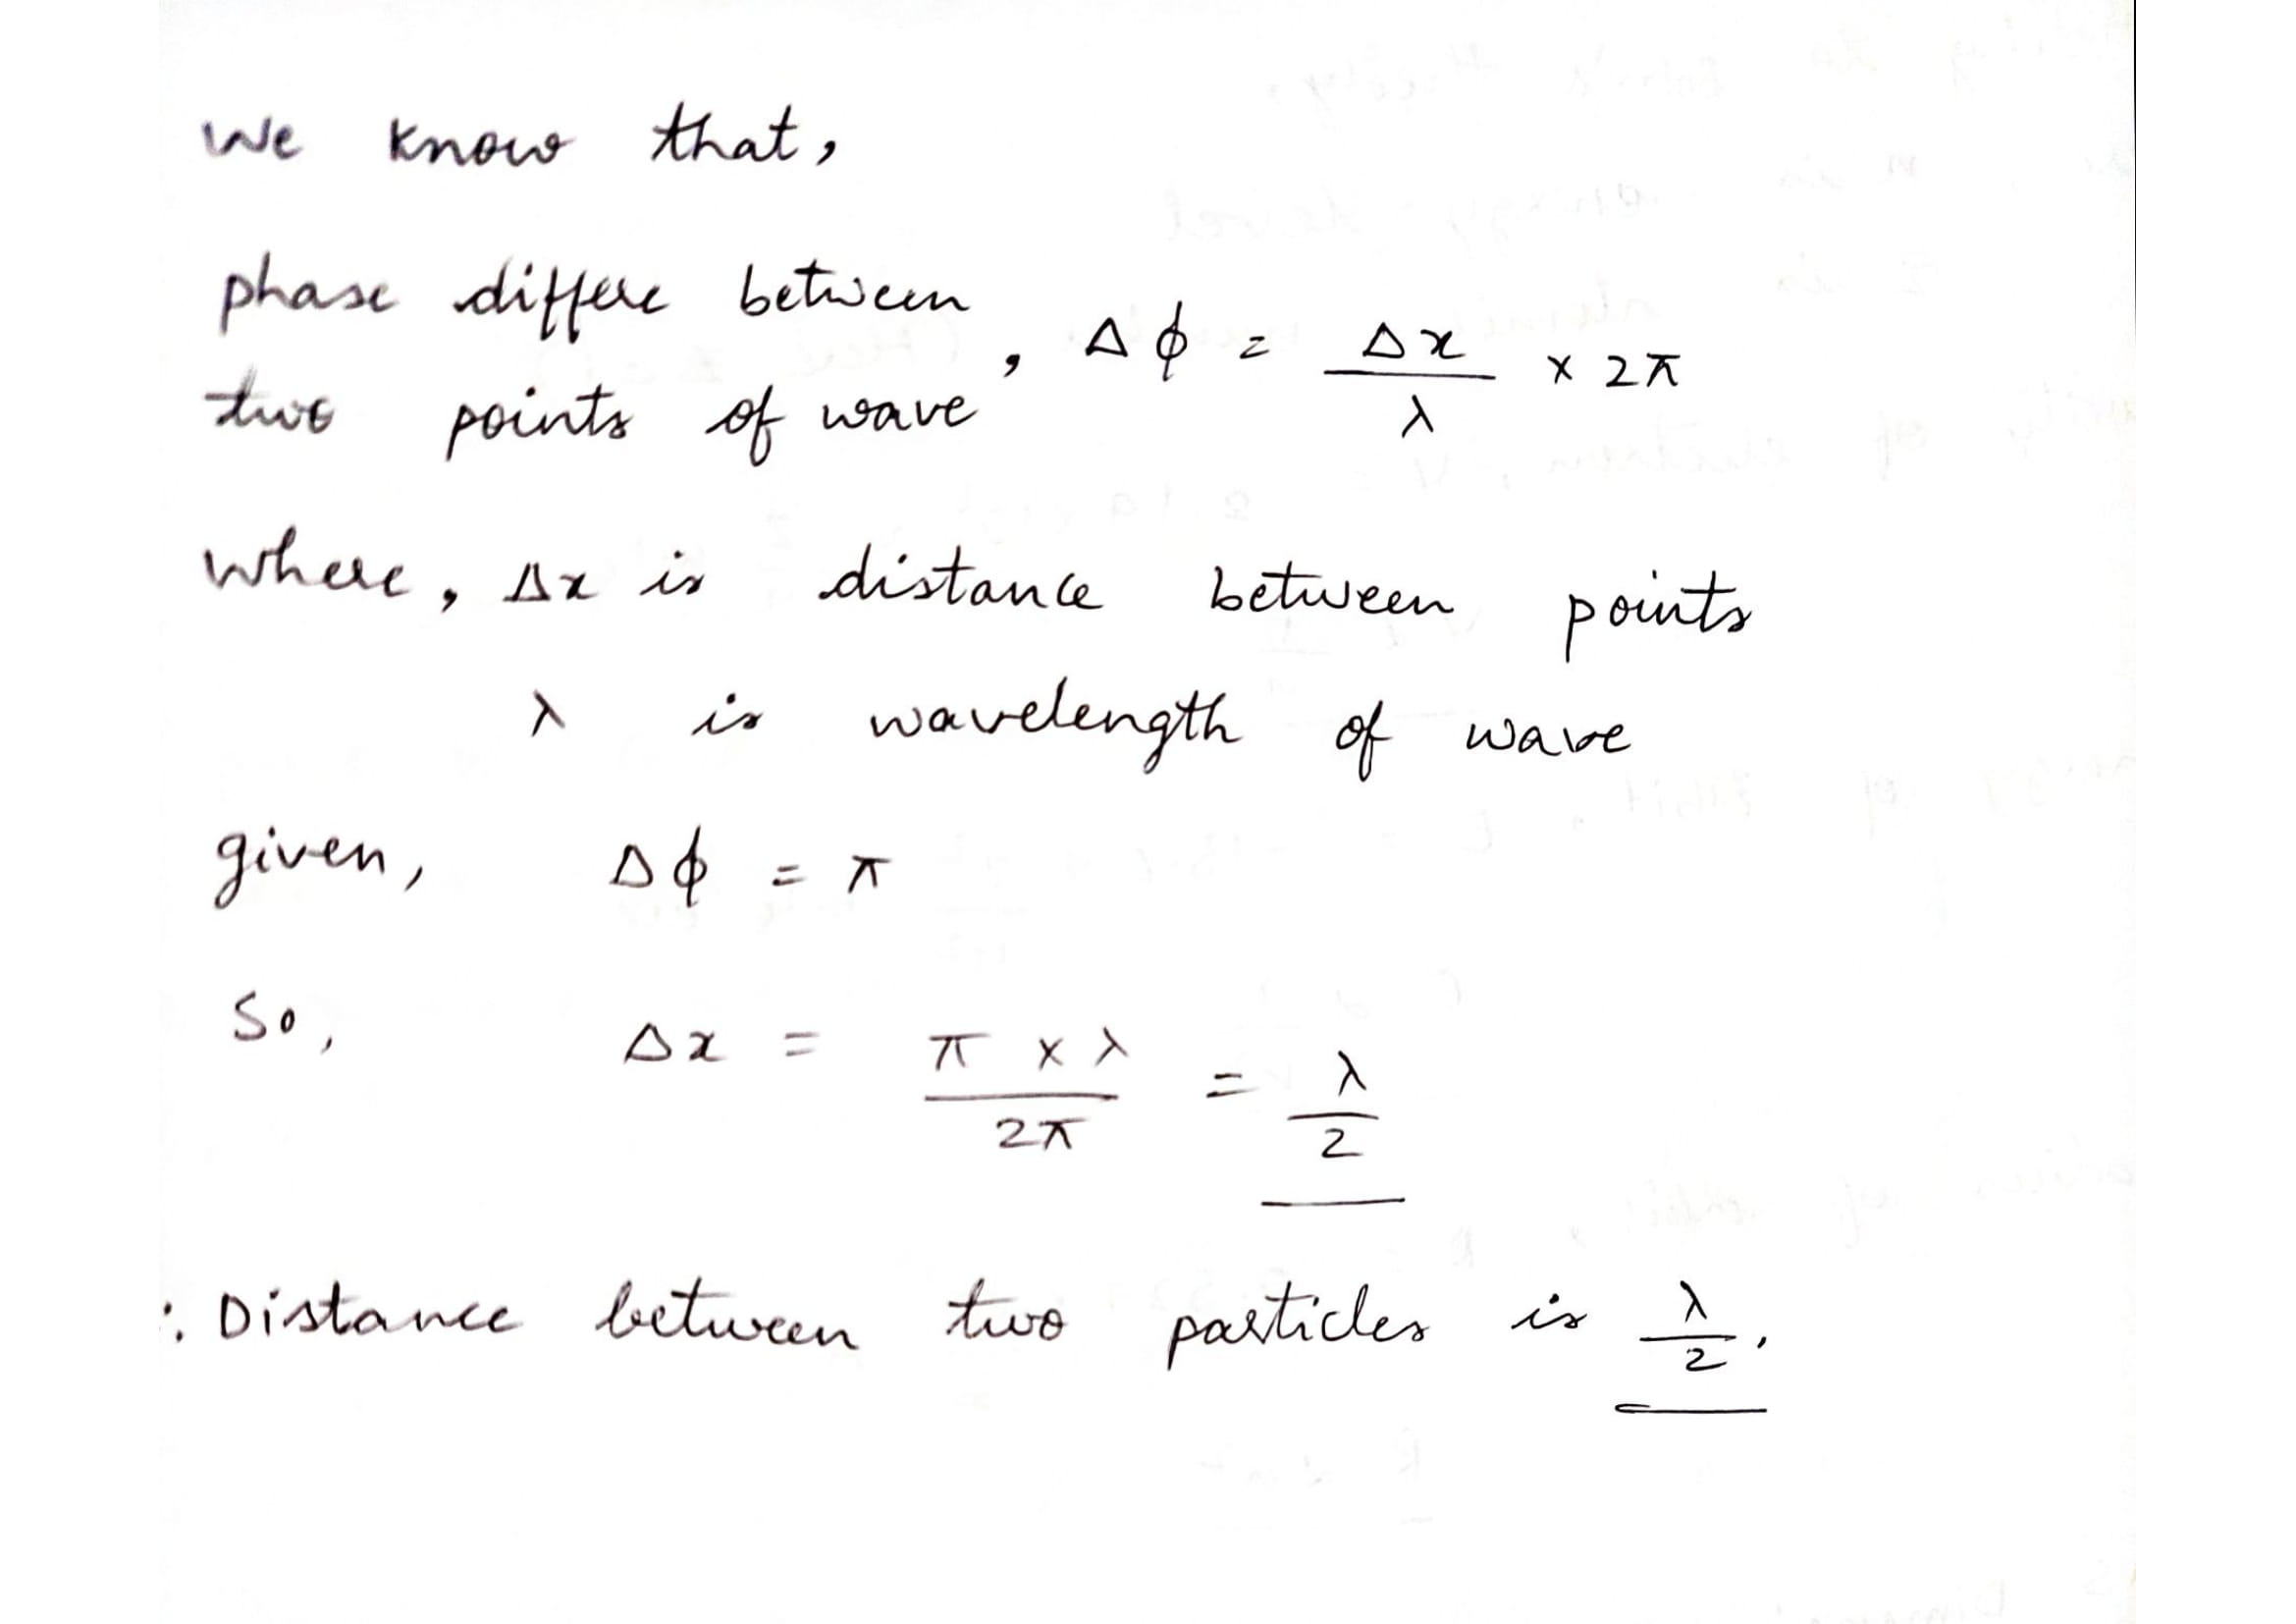 We know that,
phase differe between
two points of wave , Δϕ = Δx/λ × 2π
Where, Δx is distance between points
λ is wavelength of wave
given, Δϕ = π
So, Δx = π × λ / 2π = λ/2
∴ Distance between two particles is λ/2.